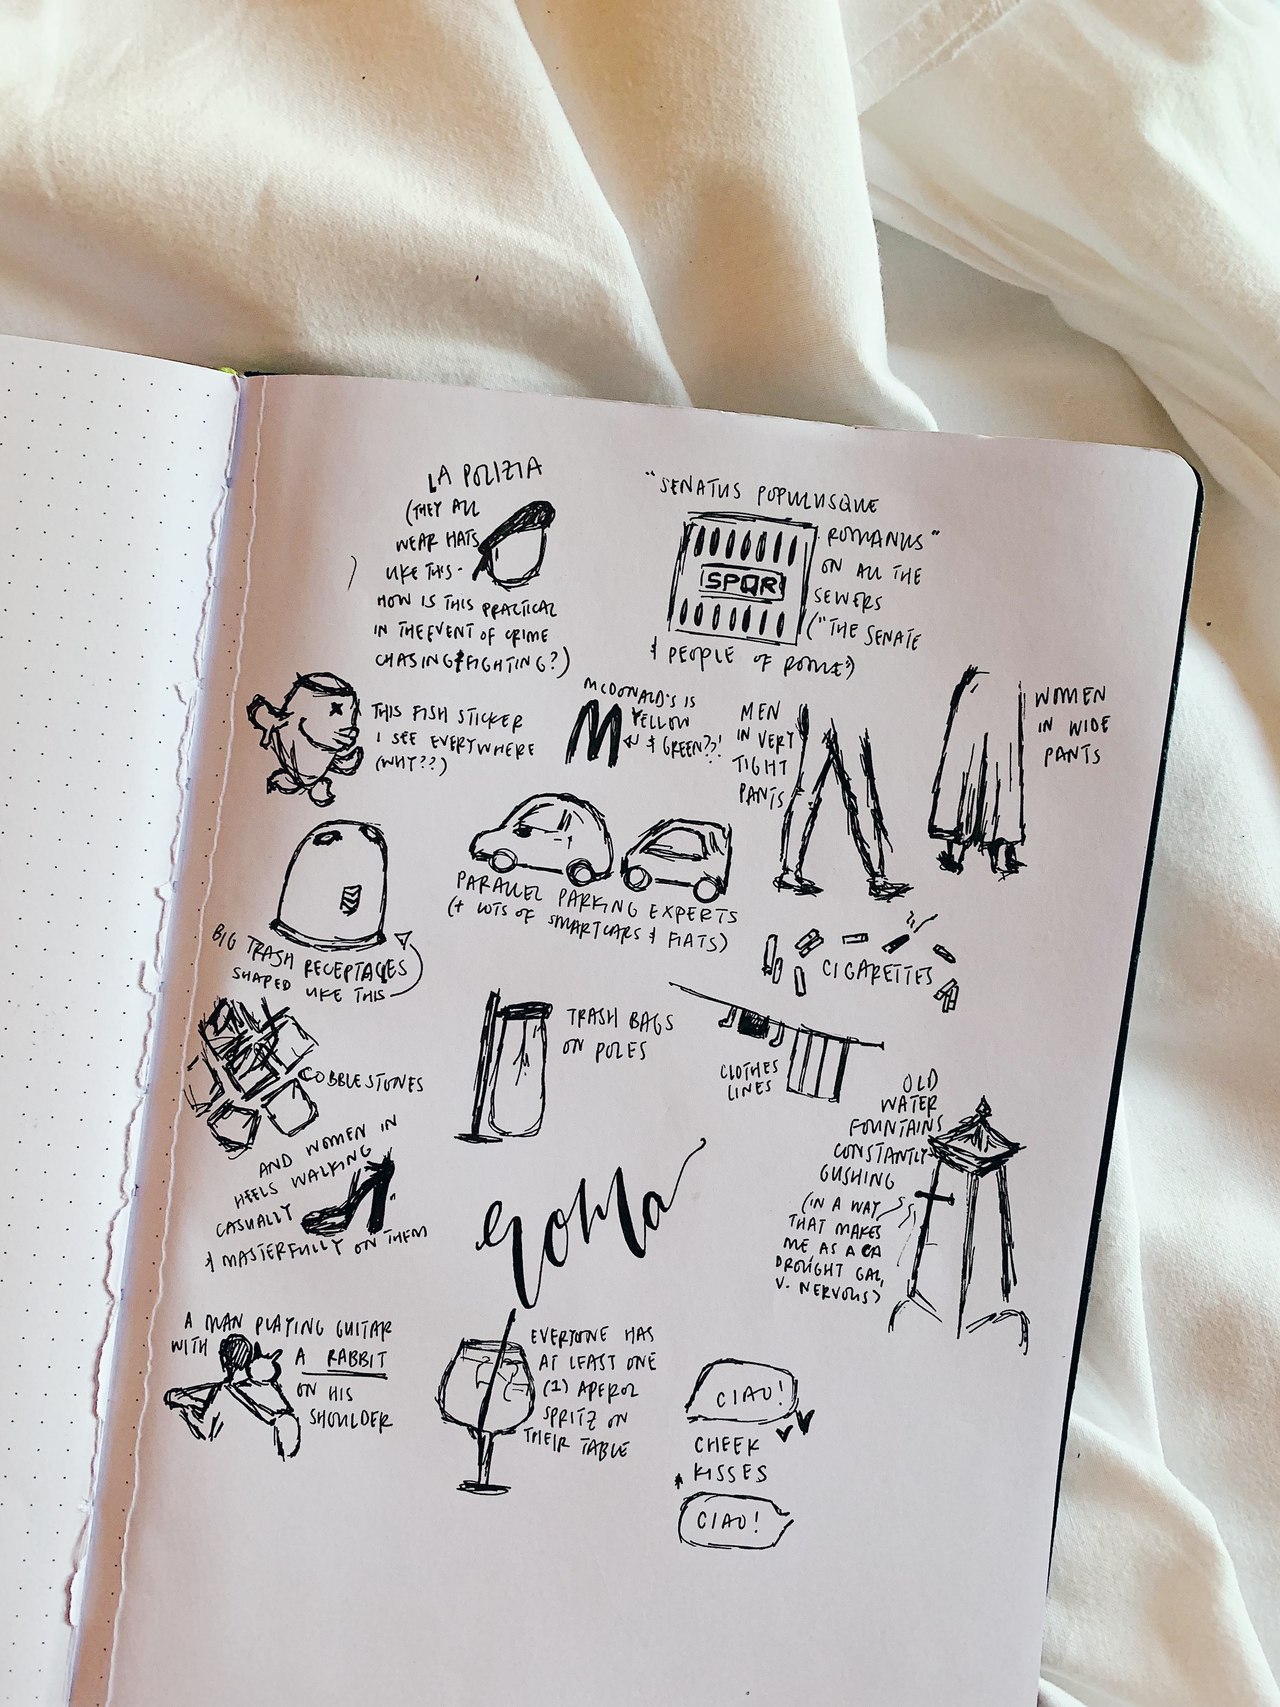 LA POLIZIA
(THEY ALL
WEAR HATS
LIKE THIS-
HOW IS THIS PRACTICAL
IN THE EVENT OF CRIME
CHASING & FIGHTING?)
"SENATUS POPULUSQUE
ROMANUS"
ON ALL THE
SEWERS
("THE SENATE
& PEOPLE OF ROME")
SPQR
THIS FISH STICKER
I SEE EVERYWHERE
(WHY??)
MCDONALD'S IS
YELLOW
& GREEN??!
M
MEN
IN VERY
TIGHT
PANTS
WOMEN
IN WIDE
PANTS
BIG TRASH RECEPTACLES
SHAPED LIKE THIS
PARALLEL PARKING EXPERTS
(+ LOTS OF SMARTCARS & FIATS)
CIGARETTES
COBBLESTONES
AND WOMEN IN
HEELS WALKING
CASUALLY
& MASTERFULLY ON THEM
TRASH BAGS
ON POLES
CLOTHES
LINES
OLD
WATER
FOUNTAINS
CONSTANTLY
GUSHING
(IN A WAY
THAT MAKES
ME AS A CA
DROUGHT GAL,
V. NERVOUS)
Roma
A MAN PLAYING GUITAR
WITH
A RABBIT
ON HIS
SHOULDER
EVERYONE HAS
AT LEAST ONE
(1) APEROL
SPRITZ ON
THEIR TABLE
CIAO!
CHEEK
KISSES
CIAO!